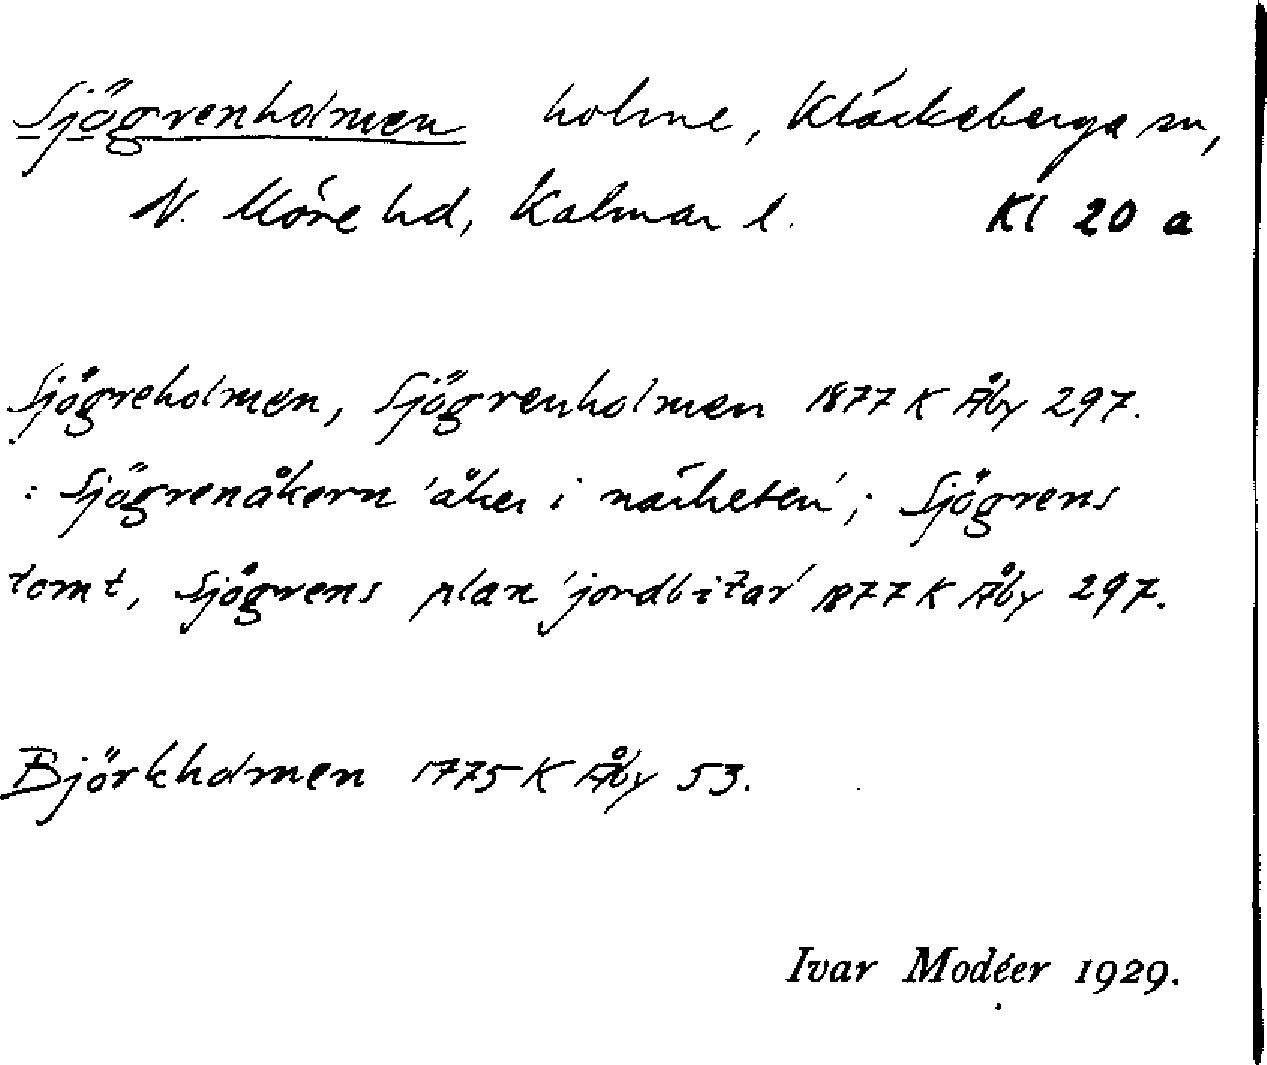 Sjögrenholmen holme, Kläckeberga sn,
N. Möre hd, Kalmar l. Kl 20 a
Sjögreholmen, Sjögrenholmen 1877 K Åby 297.
: Sjögrenåkern 'åker i närheten'; Sjögrens
tomt, Sjögrens plan 'jordbitar' 1877 K Åby 297.
Björkholmen 1775 K Åby 53.
Ivar Modéer 1929.